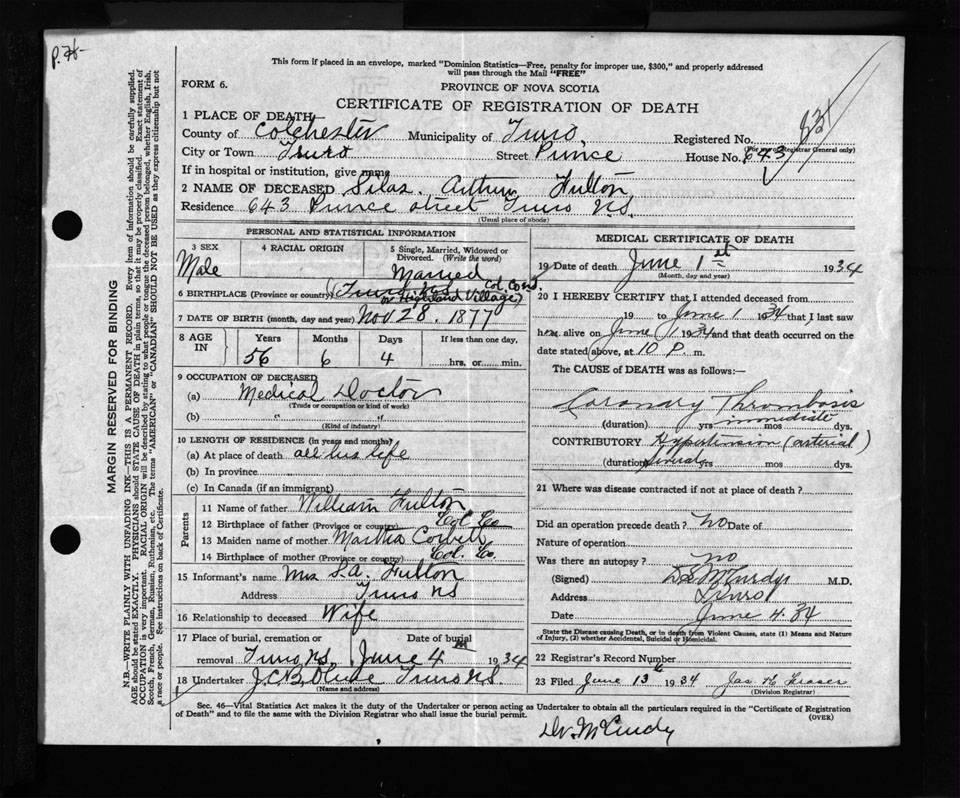 P. 76
This form if placed in an envelope, marked "Dominion Statistics—Free, penalty for improper use, $300," and properly addressed
will pass through the Mail "FREE"
FORM 6.
PROVINCE OF NOVA SCOTIA
CERTIFICATE OF REGISTRATION OF DEATH
831
1 PLACE OF DEATH—
County of Colchester Municipality of Truro Registered No.
(For use of Registrar General only)
City or Town Truro Street Prince House No. 643
If in hospital or institution, give name
2 NAME OF DECEASED Silas Arthur Fulton
Residence 643 Prince Street Truro N.S.
(Usual place of abode)
PERSONAL AND STATISTICAL INFORMATION
3 SEX 4 RACIAL ORIGIN 5 Single, Married, Widowed or Divorced. (Write the word)
Male Married
6 BIRTHPLACE (Province or country) (Truro N.S. Col. Co.
or Highland Village)
7 DATE OF BIRTH (month, day and year) Nov 28. 1877
8 AGE IN Years Months Days If less than one day,
56 6 4 hrs. or min.
9 OCCUPATION OF DECEASED
(a) Medical Doctor
(Trade or occupation or kind of work)
(b) " "
(Kind of industry)
10 LENGTH OF RESIDENCE (in years and months)
(a) At place of death all his life
(b) In province
(c) In Canada (if an immigrant)
Parents
11 Name of father William Fulton
12 Birthplace of father (Province or country) Col. Co
13 Maiden name of mother Martha Corbett
14 Birthplace of mother (Province or country) Col. Co.
15 Informant's name Mrs S.A. Fulton
Address Truro NS
16 Relationship to deceased Wife
17 Place of burial, cremation or Date of burial
removal Truro N.S. June 4 1934
18 Undertaker J.C.B. Olive Truro N.S.
(Name and address)
MEDICAL CERTIFICATE OF DEATH
19 Date of death June 1st 1934
(Month, day and year)
20 I HEREBY CERTIFY that I attended deceased from
19 to June 1 1934 that I last saw
him alive on June 1 1934 and that death occurred on the
date stated above, at 10 P. m.
The CAUSE of DEATH was as follows:—
Coronary Thrombosis
(duration) yrs immediate mos dys.
CONTRIBUTORY Hypertension (arterial)
(duration) yrs mos dys.
21 Where was disease contracted if not at place of death?
Did an operation precede death? No Date of
Nature of operation
Was there an autopsy? no
(Signed) McCurdy M.D.
Address Truro
Date June 4. 34
State the Disease causing Death, or in death from Violent Causes, state (1) Means and Nature
of Injury, (2) whether Accidental, Suicidal or Homicidal.
22 Registrar's Record Number
23 Filed June 13 1934 Jas. Fraser
(Division Registrar)
Sec. 46—Vital Statistics Act makes it the duty of the Undertaker or person acting as Undertaker to obtain all the particulars required in the "Certificate of Registration
of Death" and to file the same with the Division Registrar who shall issue the burial permit.
(OVER)
Dr. McCurdy
MARGIN RESERVED FOR BINDING
N.B.—WRITE PLAINLY WITH UNFADING INK—THIS IS A PERMANENT RECORD. Every item of information should be carefully supplied.
AGE should be stated EXACTLY. PHYSICIANS should STATE CAUSE OF DEATH in plain terms, so that it may be properly classified. Exact statement of
OCCUPATION is very important. RACIAL ORIGIN will be described by stating to what people or tongue the deceased person belonged, whether English, Irish,
Scotch, French, German, Russian, Ruthenian, etc. The terms "AMERICAN" or "CANADIAN" SHOULD NOT BE USED as they express citizenship but not
a race or people. See instructions on back of Certificate.